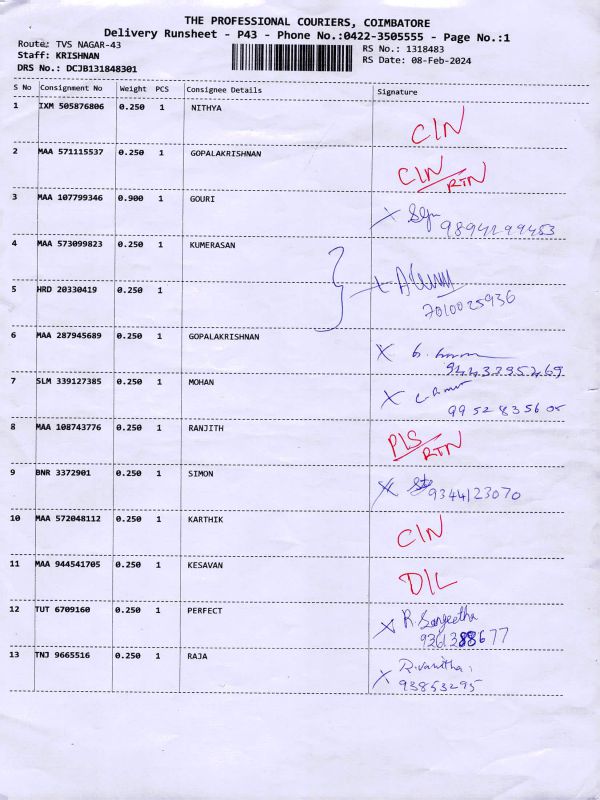 THE PROFESSIONAL COURIERS, COIMBATORE
Delivery Runsheet - P43 - Phone No.:0422-3505555 - Page No.:1
Route: TVS NAGAR-43 RS No.: 1318483
Staff: KRISHNAN RS Date: 08-Feb-2024
DRS No.: DCJB131848301
S No Consignment No Weight PCS Consignee Details Signature
1 IXM 505876806 0.250 1 NITHYA
CIN
2 MAA 571115537 0.250 1 GOPALAKRISHNAN
CIN
RTN
3 MAA 107799346 0.900 1 GOURI
9894299453
4 MAA 573099823 0.250 1 KUMERASAN
5 HRD 20330419 0.250 1
7010025936
6 MAA 287945689 0.250 1 GOPALAKRISHNAN
7 SLM 339127385 0.250 1 MOHAN
8 MAA 108743776 0.250 1 RANJITH
RTN
9 BNR 3372901 0.250 1 SIMON
9344123070
10 MAA 572048112 0.250 1 KARTHIK
CIN
11 MAA 944541705 0.250 1 KESAVAN
D/L
12 TUT 6709160 0.250 1 PERFECT
R. Sangeetha
13 TNJ 9665516 0.250 1 RAJA
R. vanitha
93853295